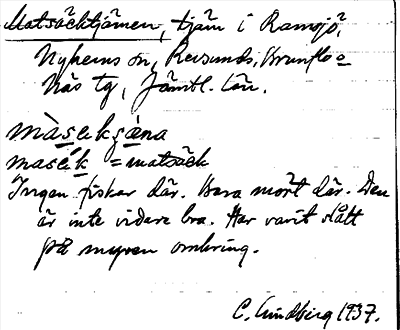 Matsäcktjärnen, tjärn i Ramsjö,
Nyhems sn, Revsunds, Brunflo o
Näs tg, Jämtl. län.
màsekṣána
masék = matsäck
Ingen fiskar där. Bara mört där. Den
är inte vidare bra. Har varit slått
på myren omkring.
C. Lindberg 1937.